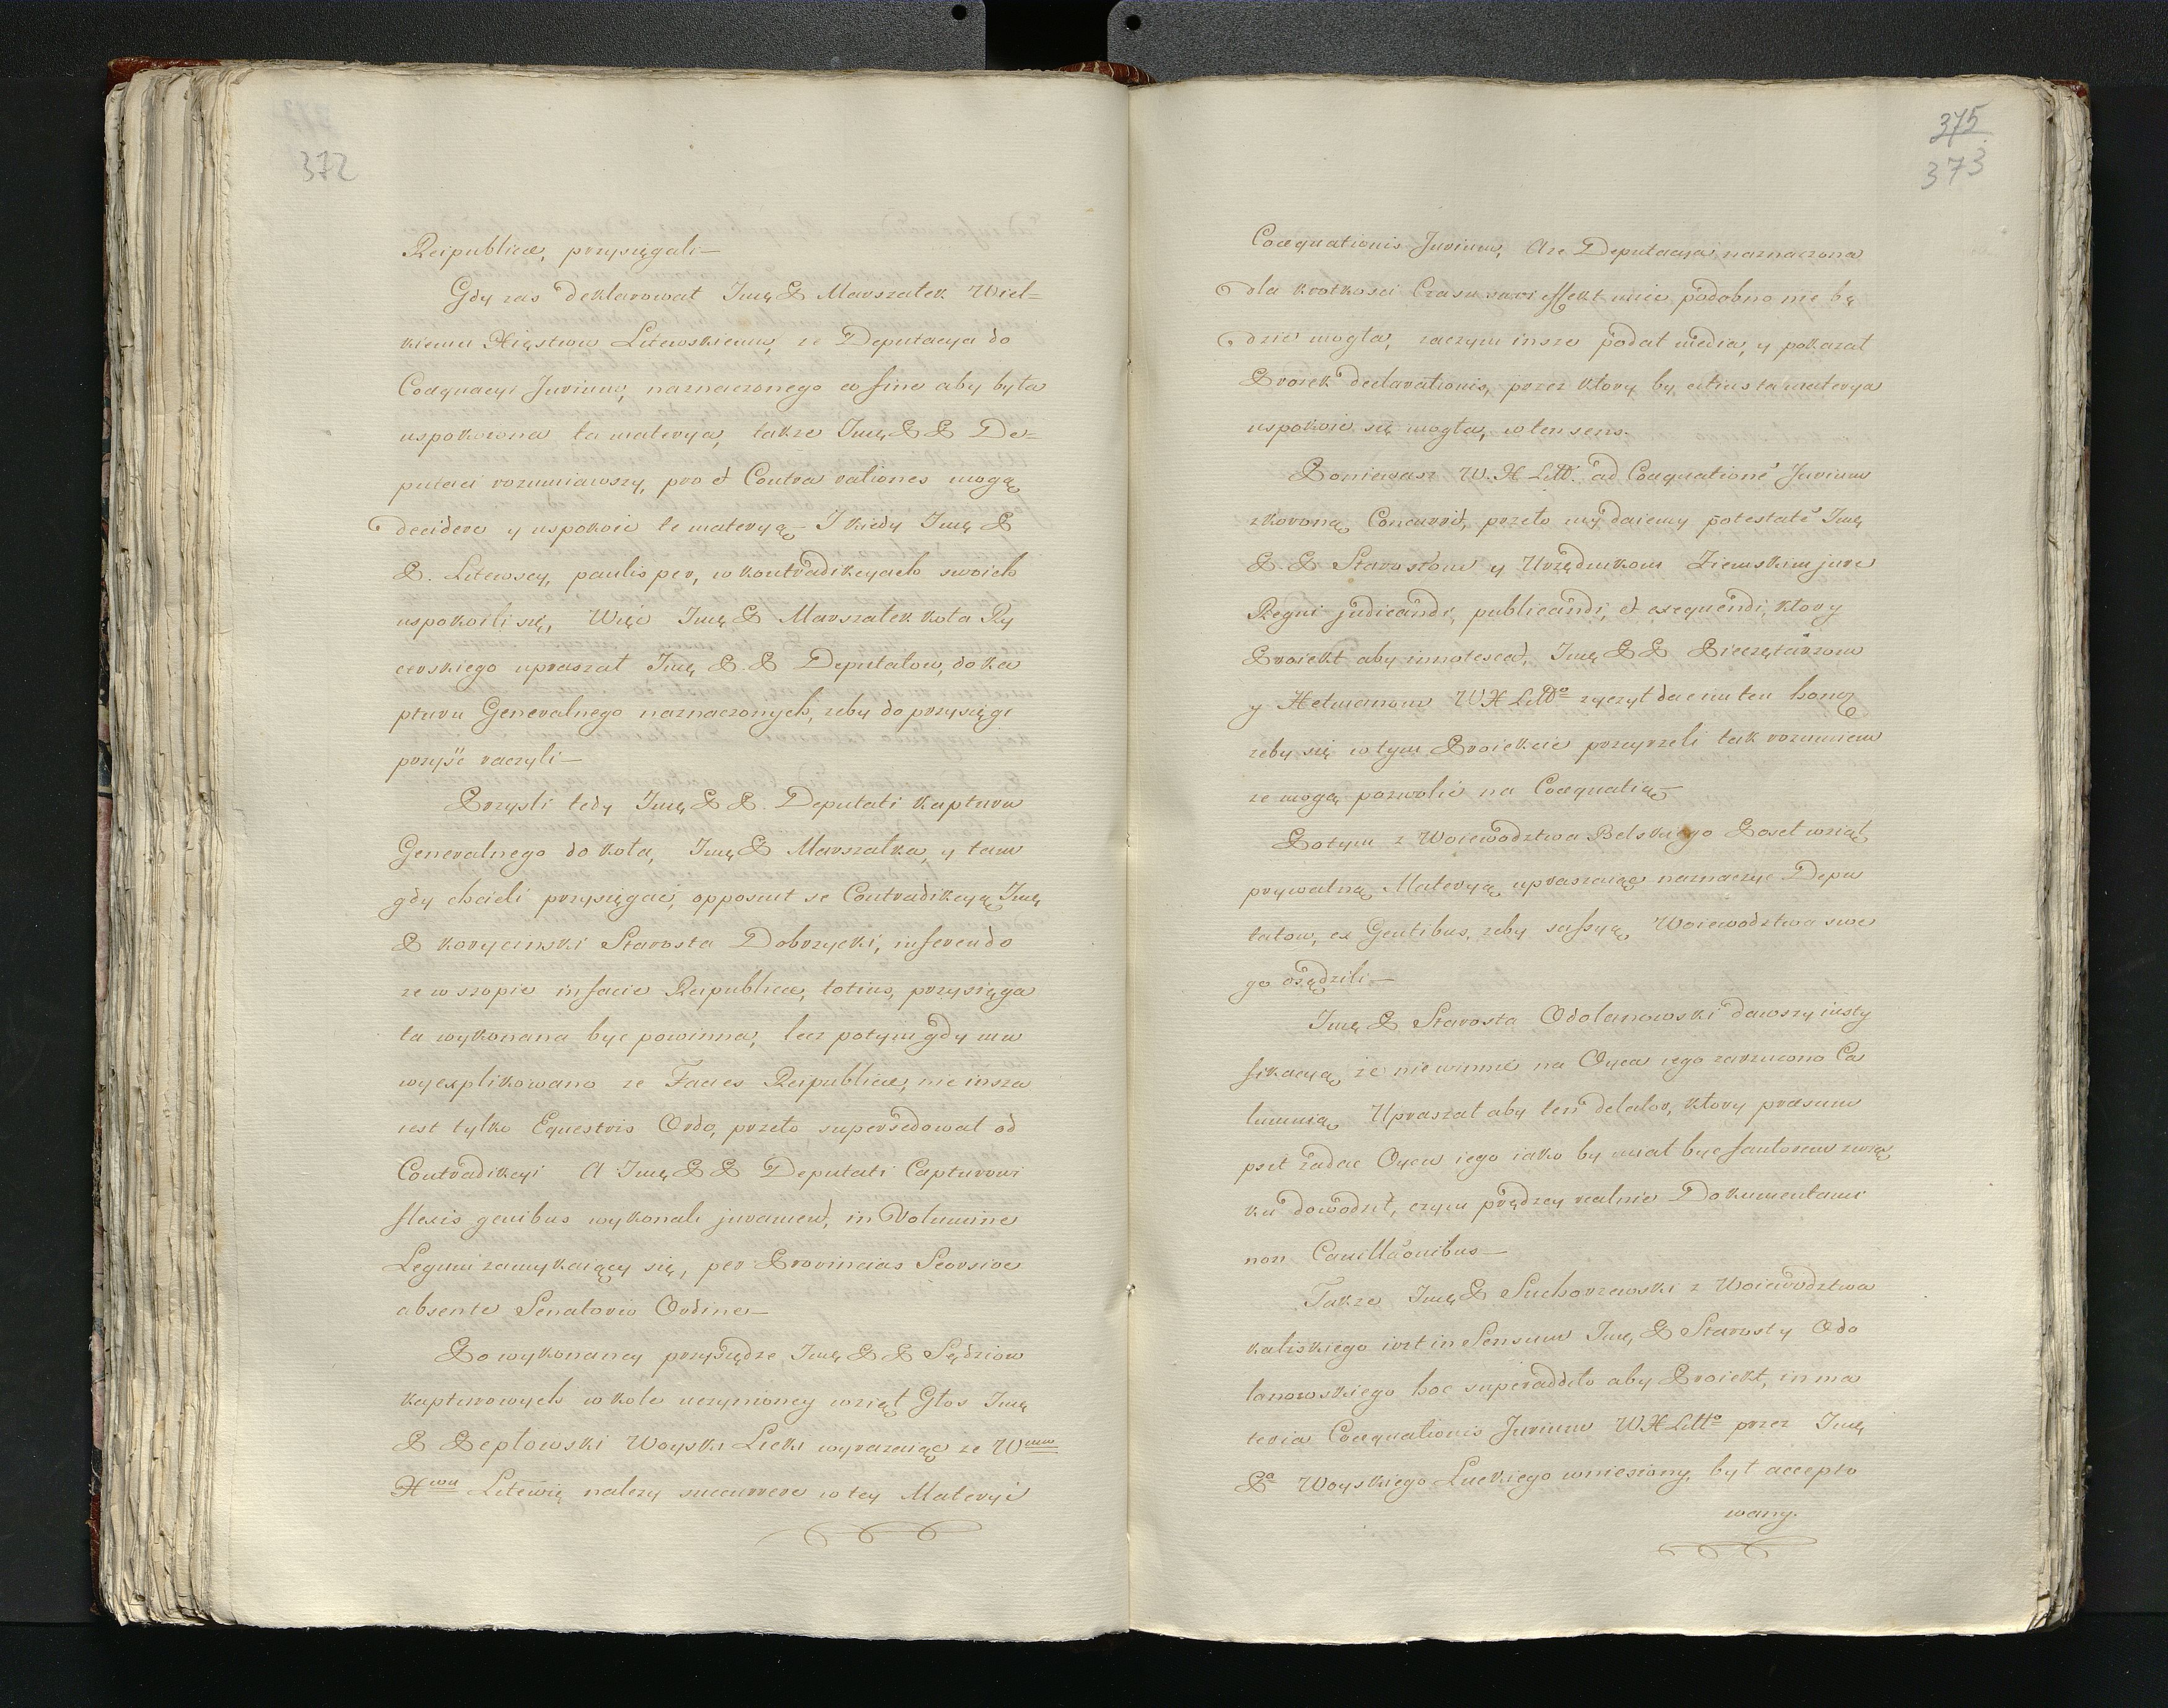 372
Reipublicæ, przysięgali—
Gdy zas deklarowat Jmę P Marszatek Wiel=
kiemu Xięstwu Litewskiemu, ze Deputacya do
Coæquacyi Jurium, naznaczonego eo fine aby byta
uspokoiona ta materya, takze Jmę P P De=
putaci rozumiawszy, pro et Contra rationes mogą
decidere y uspokoic te materyą— I kiedy Jmę P
P. Litewscy, paulisper, w kontradikcyach swoich
uspokoili się, Więc Jmę P Marszatek kota Ry
cerskiego upraszat Jmę P. P Deputatow, do ka
pturu Generalnego naznaczonych, zeby do przysięgi
przyść raczyli—
Przysli tedy Jmę P P. Deputati kapturu
Generalnego do kota, Jmę P Marszatka, y tam
gdy chcieli przysięgać, opposuit se Contradikcyą Jmę
P korycinski Starosta Dobrzycki, inferendo
ze w szopie in facie Reipublicæ, totius, przysięga
ta wykonana byc powinna, lecz potym gdy mu
wyexplikowano ze Facies Reipublicæ, nie insza
iest tylko Equestris Ordo, przeto supersedowat od
Contradikcyi A Jmę P P Deputati Capturowi
flexis genibus wykonali jurament, in Volumine
Legum zamykaiący się, per Provincias Seorsive
absente Senatorio Ordine—
Po wykonaney przysiędze Jmę P P Sędziow
kapturowych w kole uczynioney wziąt Gtos Jmę
P Peptowski Woyski Lucki wyrazaiąc ze Wmu
Xwu Litewię nalezy succurrere w tey Materyi
375
373
Coæquationis Jurium, A ze Deputacya naznaczona
dla krotkosci Czasu swoi effekt miec podobno nie bę
dzie mogta, zaczym insze podat media, y pokazat
Proiek declarationis, przez ktory by citius ta materya
uspokoic się mogta, w ten sens.
Poniewasz W. X Litt. ad Coæquatione Jurium
z koroną Concurrit, przeto my daiemy potestate Jmę
P. P Starostom y Urzędnikom Ziemskim jure
Regni judicandi, publicandi, et exequendi, ktory
Proiekt aby innotescat, Jmę P P Pieczętarzom
y Hetmanom W X Litto zyczyt dac im ten honor
zeby się w tym Proiekcie przeyrzeli tak rozumiem
ze mogą pozwolic na Coæquatią—
Potym z Woiewodztwa Belskiego Poset wziąt
prywatną Materyą upraszaiąc naznaczyc Depu
tatow, ex Gentibus, zeby sassyą Woiewodztwa swe
go osądzili—
Jmę P Starosta Odolanowski dawszy iusty
fikacyą ze niewinnie na Oyca iego zarzucono Ca
lumnią Upraszat aby ten delator, ktory præsum
psit zadac Oycu iego iako by miat byc fautorem zwiąs
ku dowodzit, czym prędzey realnie Dokumentami
non Cavillaonibus—
Takze Jmę P Suchorzewski z Woiewodztwa
kaliskiego ivit in Sensum Jmę P Starosty Odo
lanowskiego hoc superaddito aby Proiekt, in ma
teria Coæquationis Jurium W X Litto przez Jmę
Pa Woyskiego Luckiego wniesiony, byt accepto
wany.